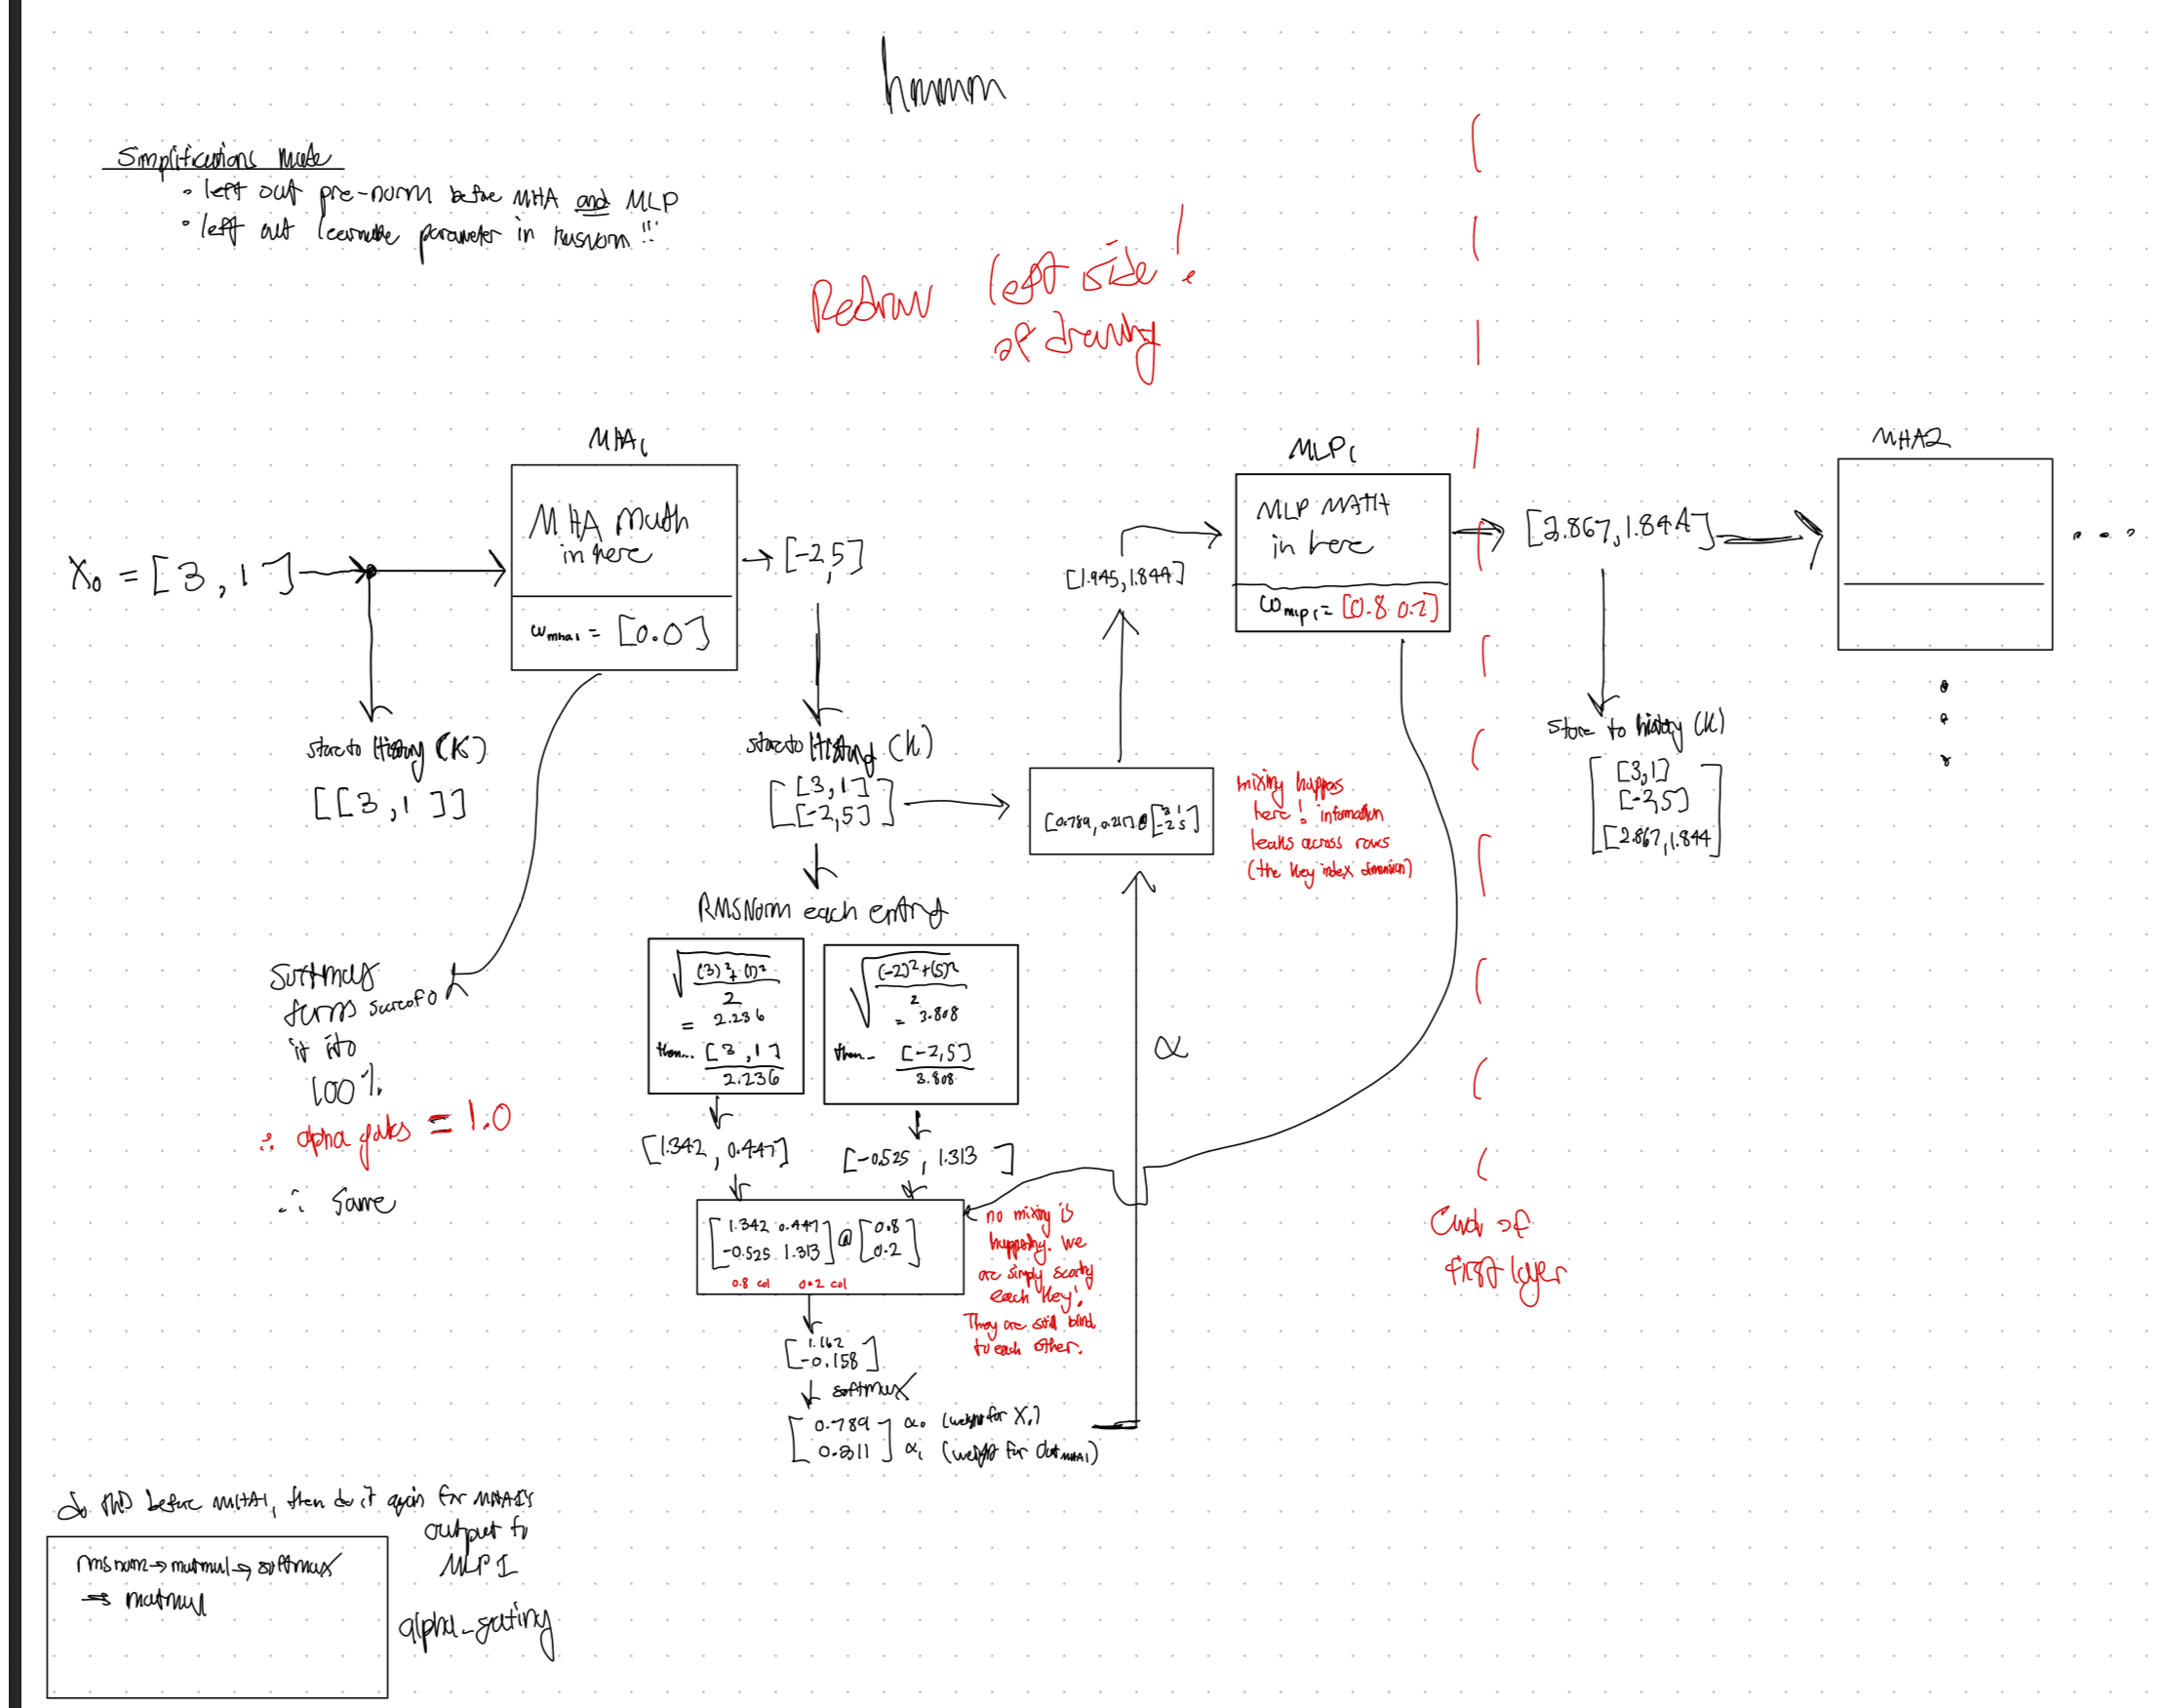 hmmm
Simplifications Made
• left out pre-norm before MHA and MLP
• left out learnable parameter in RMSNorm!!
Redraw left side!
of drawing
X₀ = [3, 1]
store to History (K)
[[3, 1]]
MHA₁
MHA Math
in here
ω_mha1 = [0.0]
→ [-2, 5]
store to History (K)
[3, 1]
[-2, 5]
RMSNorm each entry
√((3)² + (1)² / 2)
= 2.236
then... [3, 1] / 2.236
√((-2)² + (5)² / 2)
= 3.808
then... [-2, 5] / 3.808
[1.342, 0.447]
[-0.525, 1.313]
[1.342 0.447
-0.525 1.313] @ [0.8
0.2]
0.8 col 0.2 col
no mixing is
happening. We
are simply scoring
each key!
They are still blind
to each other.
[1.162
-0.158]
softmax
[0.789
0.211]
α₀ (weight for X₀)
α₁ (weight for Out MHA1)
α
[0.789, 0.217] @ [3 1
-2 5]
mixing happens
here! information
leaks across rows
(the key index dimension)
[1.945, 1.844]
MLP₁
MLP MATH
in here
ω_mlp1 = [0.8 0.2]
[2.867, 1.844]
store to history (K)
[3, 1]
[-2, 5]
[2.867, 1.844]
MHA2
...
End of
first layer
Softmax
turns score of 0
it into
100%
∴ alpha gates = 1.0
∴ Same
do this before MHA1, then do it again for MHA1's
output to
MLP1
rmsnorm → matmul → softmax
→ matmul
alpha-gating